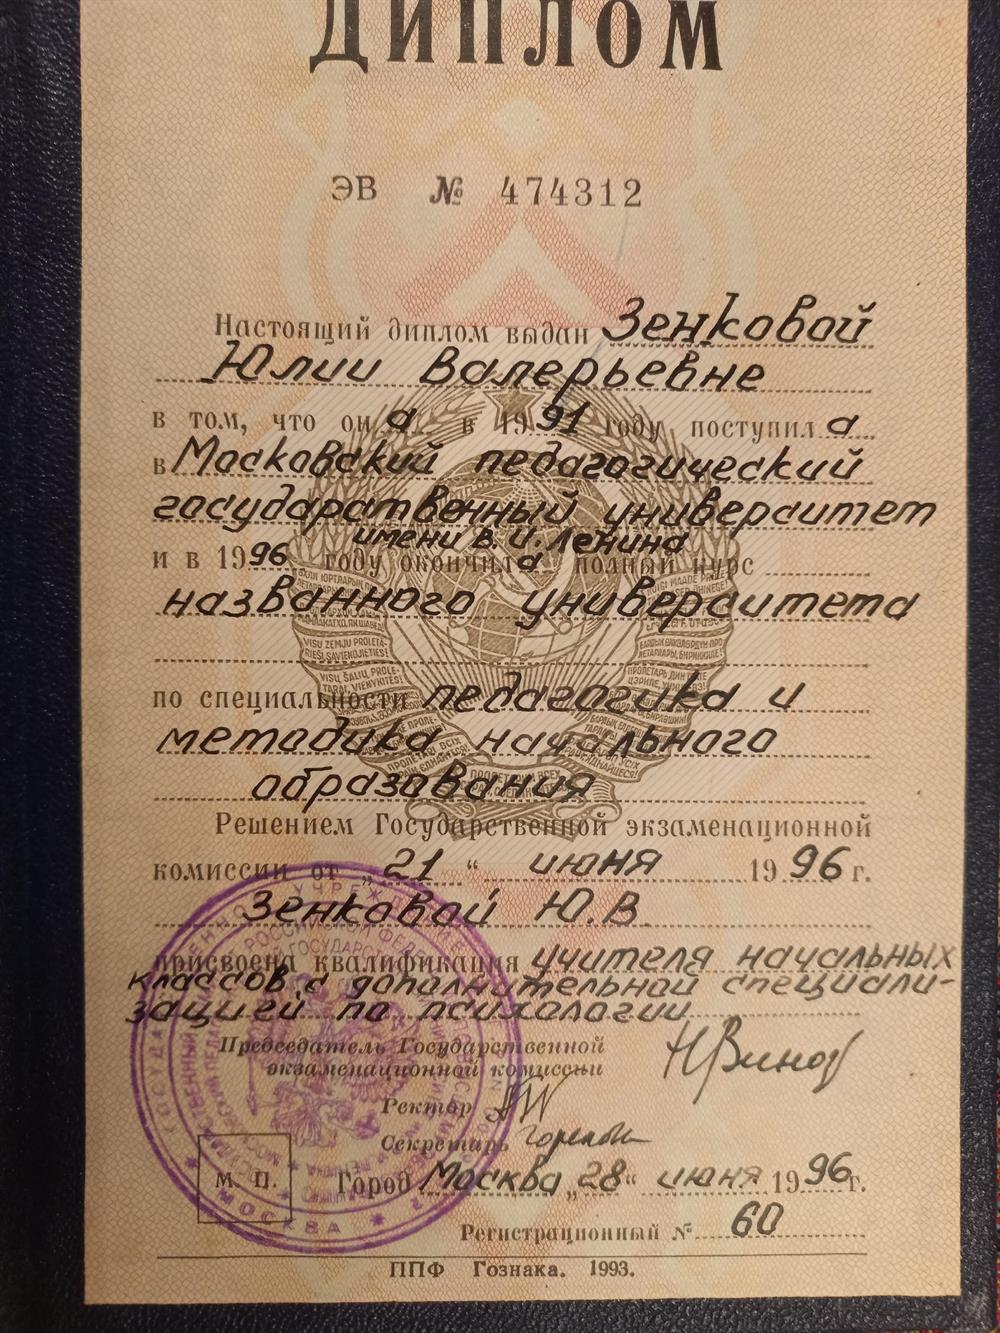 ДИПЛОМ
ЭВ № 474312
Настоящий диплом выдан Зенковой
Юлии Валерьевне
в том, что он а в 1991 году поступил а
в Московский педагогический
государственный университет
имени В. И. Ленина
и в 1996 году окончил а полный курс
названного университета
по специальности педагогика и
методика начального
образования
Решением Государственной экзаменационной
комиссии от „21“ июня 1996 г.
Зенковой Ю. В.
присвоена квалификация учителя начальных
классов с дополнительной специали-
зацией по психологии
Председатель Государственной
экзаменационной комиссии
Ректор
Секретарь
М. П. Город Москва „28“ июня 1996 г.
Регистрационный № 60
МОСКВА
ППФ Гознака. 1993.